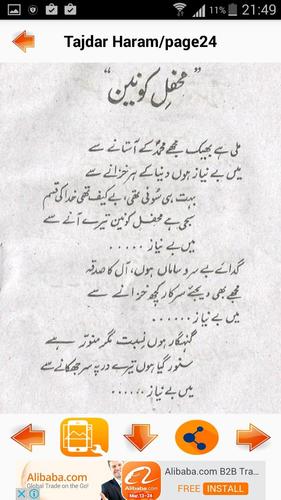 11% 21:49
Tajdar Haram/page24
"محفلِ کونین"
ملی ہے بھیک مجھے محمدؐ کے آستانے سے
میں بے نیاز ہوں دنیا کے ہر خزانے سے
بہت ہی سُونی تھی، بے کیف تھی خدا کی قسم
سجی ہے محفل کونین تیرے آنے سے
میں بے نیاز .....
گدائے بے سر و ساماں ہوں، آل کا صدقہ
مجھے بھی دیجئے سرکار کچھ خزانے سے
میں بے نیاز ......
گنہگار ہوں نسبت مگر منور ہے
سنور گیا ہوں تیرے در پہ سر جھکانے سے
میں بے نیاز ......
Alibaba.com
Global Trade on the Go!
Alibaba.com
Mar.13-24
Alibaba.com B2B Tra...
FREE INSTALL